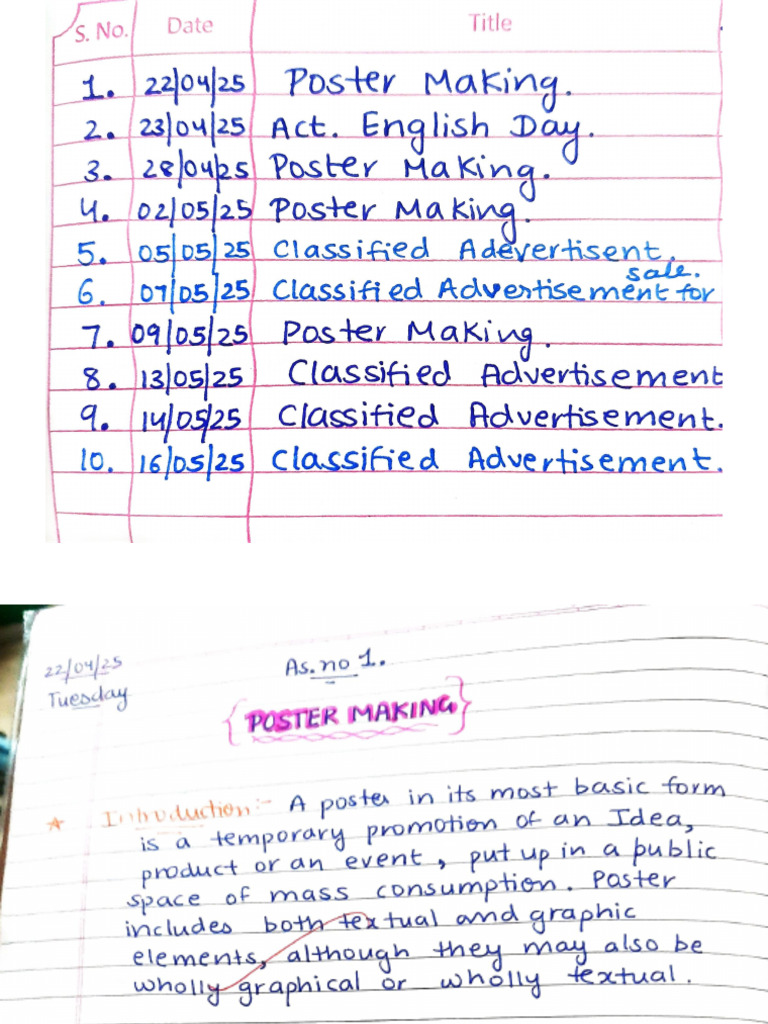 S. No. Date Title
1. 22/04/25 Poster Making.
2. 23/04/25 Act. English Day.
3. 28/04/25 Poster Making.
4. 02/05/25 Poster Making.
5. 05/05/25 Classified Adevertisent.
sale.
6. 07/05/25 Classified Advertisement for
7. 09/05/25 Poster Making.
8. 13/05/25 Classified Advertisement
9. 14/05/25 Classified Advertisement.
10. 16/05/25 Classified Advertisement.
22/04/25 As. no 1.
Tuesday
{POSTER MAKING}
★ Introduction:- A poster in its most basic form
is a temporary promotion of an Idea,
product or an event, put up in a public
space of mass consumption. Poster
includes both textual and graphic
elements, although they may also be
wholly graphical or wholly textual.